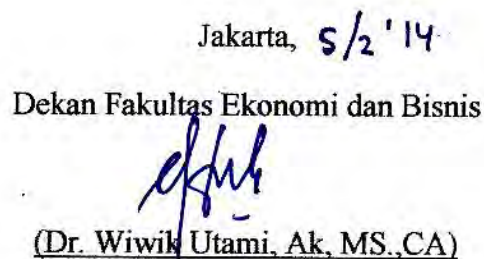 Jakarta, 5/2 '14
Dekan Fakultas Ekonomi dan Bisnis
(Dr. Wiwik Utami, Ak, MS.,CA)